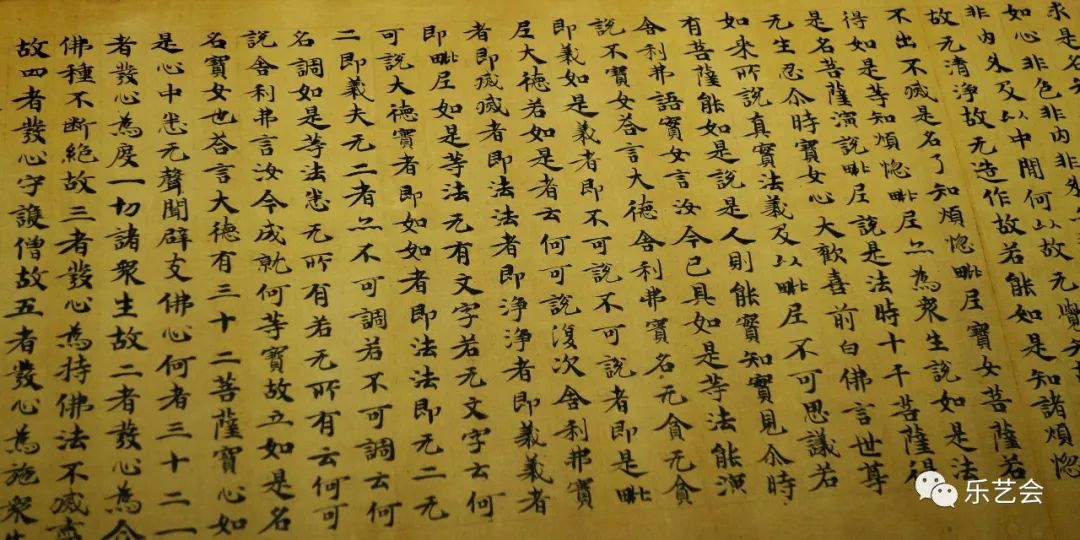 求是名
如心非色非内非外
非内外及以中間何以故无覺知故
故无清淨故无造作故若能如是知諸煩惚
不出不滅是名了知煩惚毗尼寶女菩薩若
得如是等知煩惚毗尼亦為衆生說如是法
是名菩薩演說毗尼說是法時十千菩薩得
无生忍尒時寶女心大歡喜前白佛言世尊
如來所說真實法義及以毗尼不可思議若
有菩薩能如是說是人則能實知實見尒時
舍利弗語寶女言汝今已具如是等法能演
說不寶女荅言大德舍利弗寶名无貪无貪
即義如是義者即不可說不可說者即是毗
尼大德若如是者云何可說復次舍利弗寶
者即滅滅者即法法者即淨淨者即義義者
即毗尼如是等法无有文字若无文字云何
可說大德寶者即如如者即法法即无二无
二即義夫无二者亦不可調若不可調云何
名調如是等法悉无所有若无所有云何可
說舍利弗言汝今成就何等寶故立如是名
名寶女也荅言大德有三十二菩薩寶心如
是心中悉无聲聞辟支佛心何者三十二一
者發心為度一切諸衆生故二者發心為令
佛種不斷絕故三者發心為持佛法不滅
故四者發心守護僧故五者發心為施衆生
乐艺会